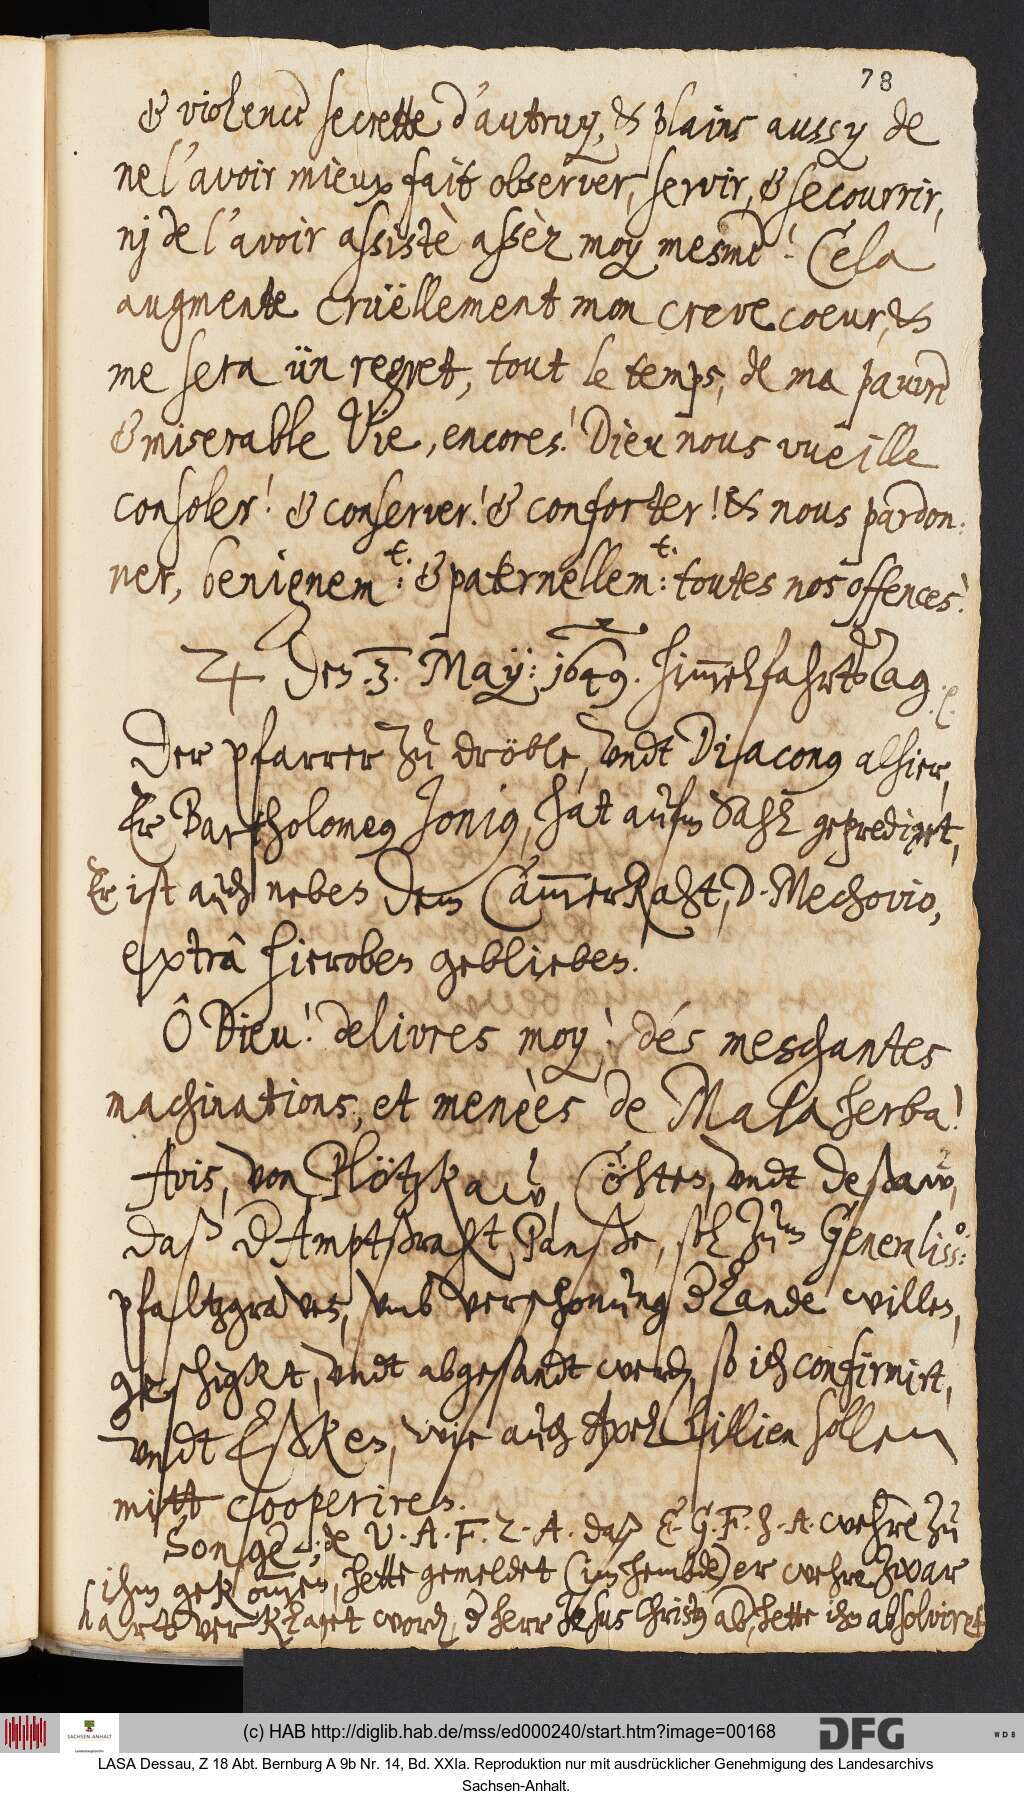 78
& violence secrette d'autruy, & plains aussy de
ne l'avoir mieux fait observer, servir, & secourrir,
nj de l'avoir assistè assèz moy mesme! Cela
augmente crüellement mon creve coeur, &
me sera ün regret, tout le temps, de ma pauvre
& miserable Vie, encores! Dieu nous vueille
consoler! & conserver! & conforter! & nous pardon:
ner, benignem:t. & paternellem:t. toutes nos offences!
♃ den .3. May: 1649. Himmelfahrtstag.
Der pfarrer zu dröble, undt Diacong alhier,
Er Bartholomeg Jonig, hat aufm Sahl gepredigt,
Er ist auch neben dem CammerRaht, D. Mechovio,
extrâ hieroben geblieben.
Ô Dieu! delivres moy! dés meschantes
machinations, et menèes de Mala herba!
Avis, von Plötzkau, Cöhten, undt Deßau,
daß d Amptsraht, Panße, sol zum Generaliss:o
pfaltzgraven, umb verschonung d Lande willen,
geschickt, undt abgesandt werden, so ich confirmirt,
undt Eßken, wie auch Axel Lillien sollen
mitt cooperiren.
Songe: de V. A. F. Z. A. daß E. G. F. Z. A. wehre zu
ihm gekommen, hette gemeldet (im hembde) er wehre zwar
hart verklaget worden, d herr Jesus Christg aber, hette ihn absolviret
(c) HAB http://diglib.hab.de/mss/ed000240/start.htm?image=00168
SACHSEN-ANHALT
DFG
WDB
LASA Dessau, Z 18 Abt. Bernburg A 9b Nr. 14, Bd. XXIa. Reproduktion nur mit ausdrücklicher Genehmigung des Landesarchivs
Sachsen-Anhalt.